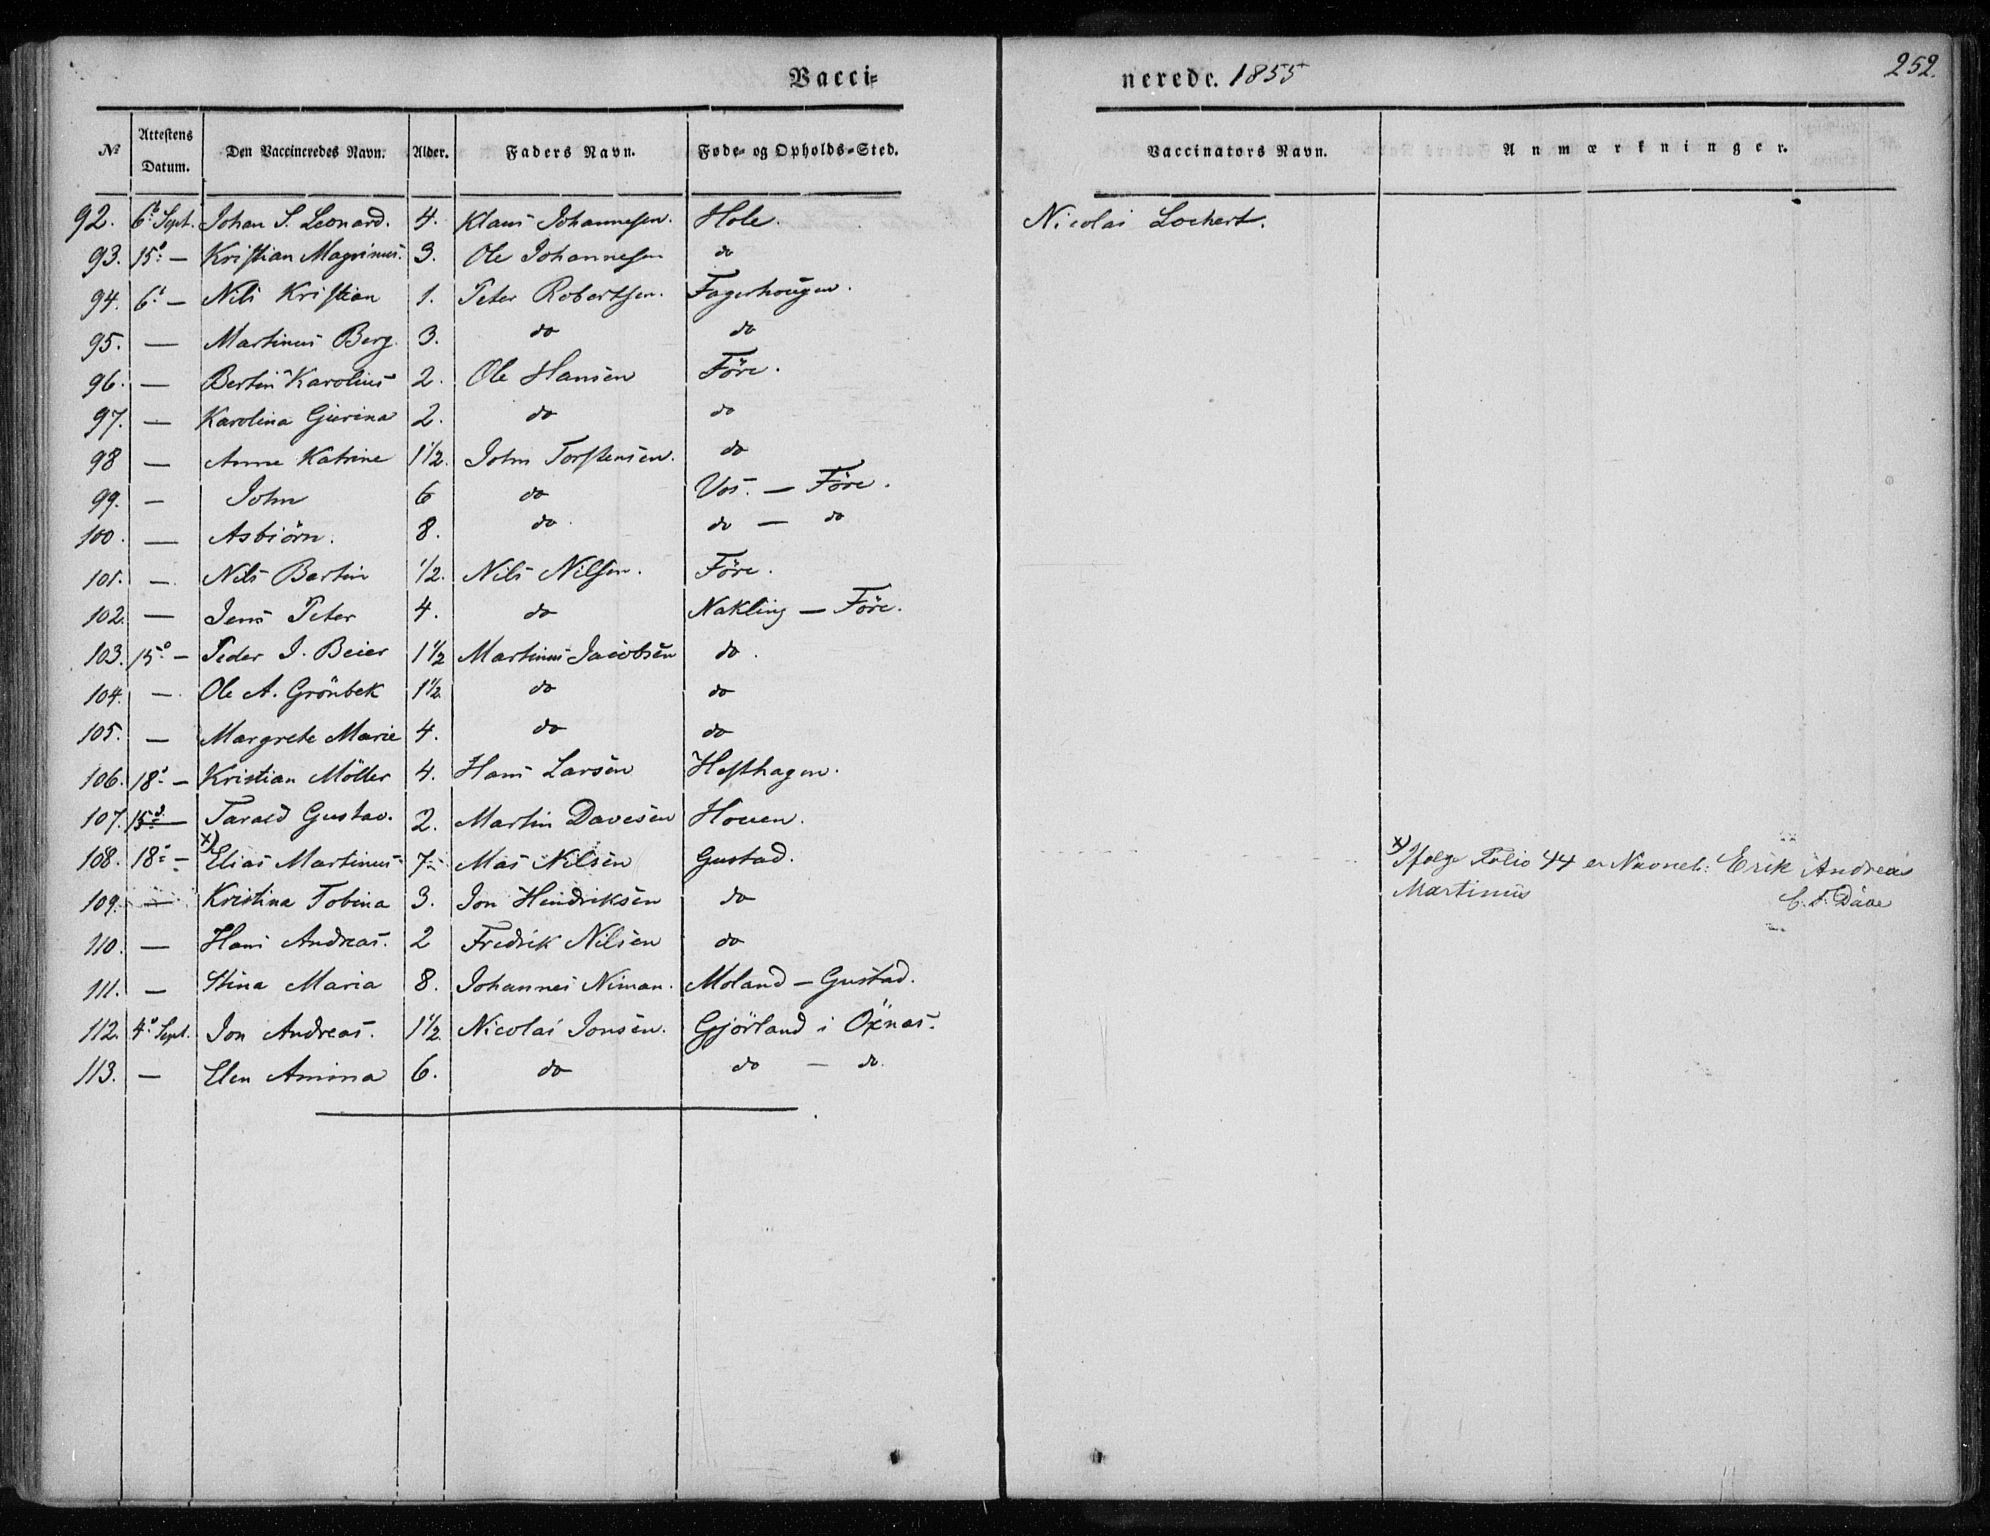 Vacci-
No Attestens Datum. Den Vaccineredes Navn. Alder. Faders Navn. Føde- og Opholds-Sted.
92. 6: Sept. Johan S. Leonard. 4. Klaus Johannesen. Hole.
93. 15: — Kristian Magnimus. 3. Ole Johannesen do
94. 6: — Nils Kristian 1. Peter Robertsen. Fagerhougen.
95. — Martinus Berg. 3. do do
96. — Bertin Karolius 2. Ole Hansen Före.
97. — Karolina Gjerina 2. do do
98 — Anne Katrine 1 1/2. John Torstensen. do
99. — John 6 do Vos. — Före.
100. — Asbiörn. 8. do. do — do
101. — Nils Bartin 1/2. Nils Nilsen. Före.
102. — Jens Peter 4. do Nakling — Före.
103. 15: — Peder J. Beier 1 1/2 Martinus Jacobsen do.
104. — Ole A. Grönbek 1 1/2. do do
105. — Margrete Marie 4. do do
106. 18: — Kristian Möller 4. Hans Larsen Hesthagen.
107. 15: — Tarald Gustav. 2. Martin Davesen Houen.
108. 18: — x) Elias Martinus 7. Mas Nilsen Gustad.
109. — Kristina Tobina 3. Jon Hendriksen do
110. — Hans Andreas. 2 Fredrik Nilsen do
111. — Stina Maria 8. Johannes Niman. Moland — Gustad.
112. 4: Sept. Jon Andreas. 1 1/2. Nicolai Jonsen. Gjörland i Öxnas.
113. — Elen Amina 6. do do — do.
nerede. 1855
252.
Vaccinators Navn. Anmærkninger.
Nicolai Lochert.
x) Ifølge Folio 44 er Navnet: Erik Andreas
Martinus